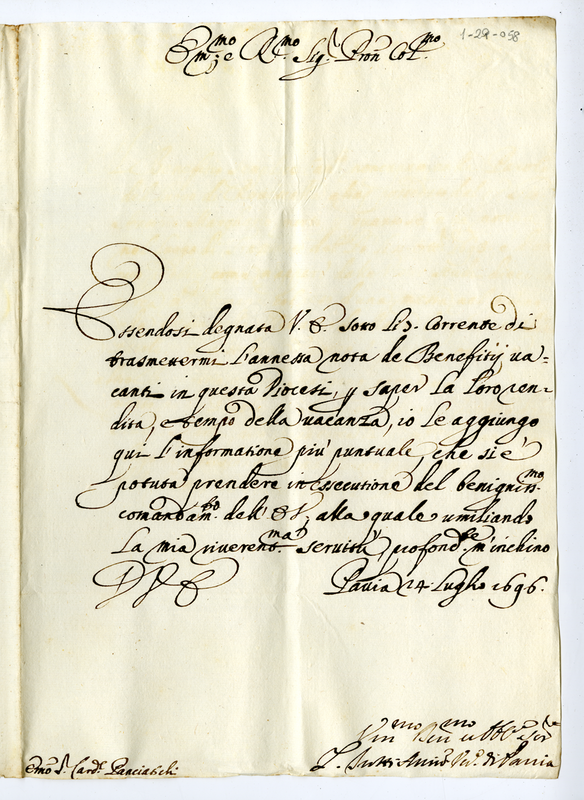 1-29-058
Em.mo e R.mo Sig.r Pron Col.mo
Essendosi degnata V. E. sotto li 3. Corrente di
trasmettermi l'annessa nota de Benefitij va=
canti in questa Diocesi, p saper la loro ren=
dita, e tempo della vacanza, io le aggiungo
qui l'informatione più puntuale, che si è
potuta prendere in essecutione del benigniss.mo
comandam.to dell' E V, alla quale umiliando
la mia riverent.ma servitù, profond.te m'inchino
D V E Pavia 24 Luglio 1696.
Um.mo
di Pavia
Emo S.r Card.l Panciatichi